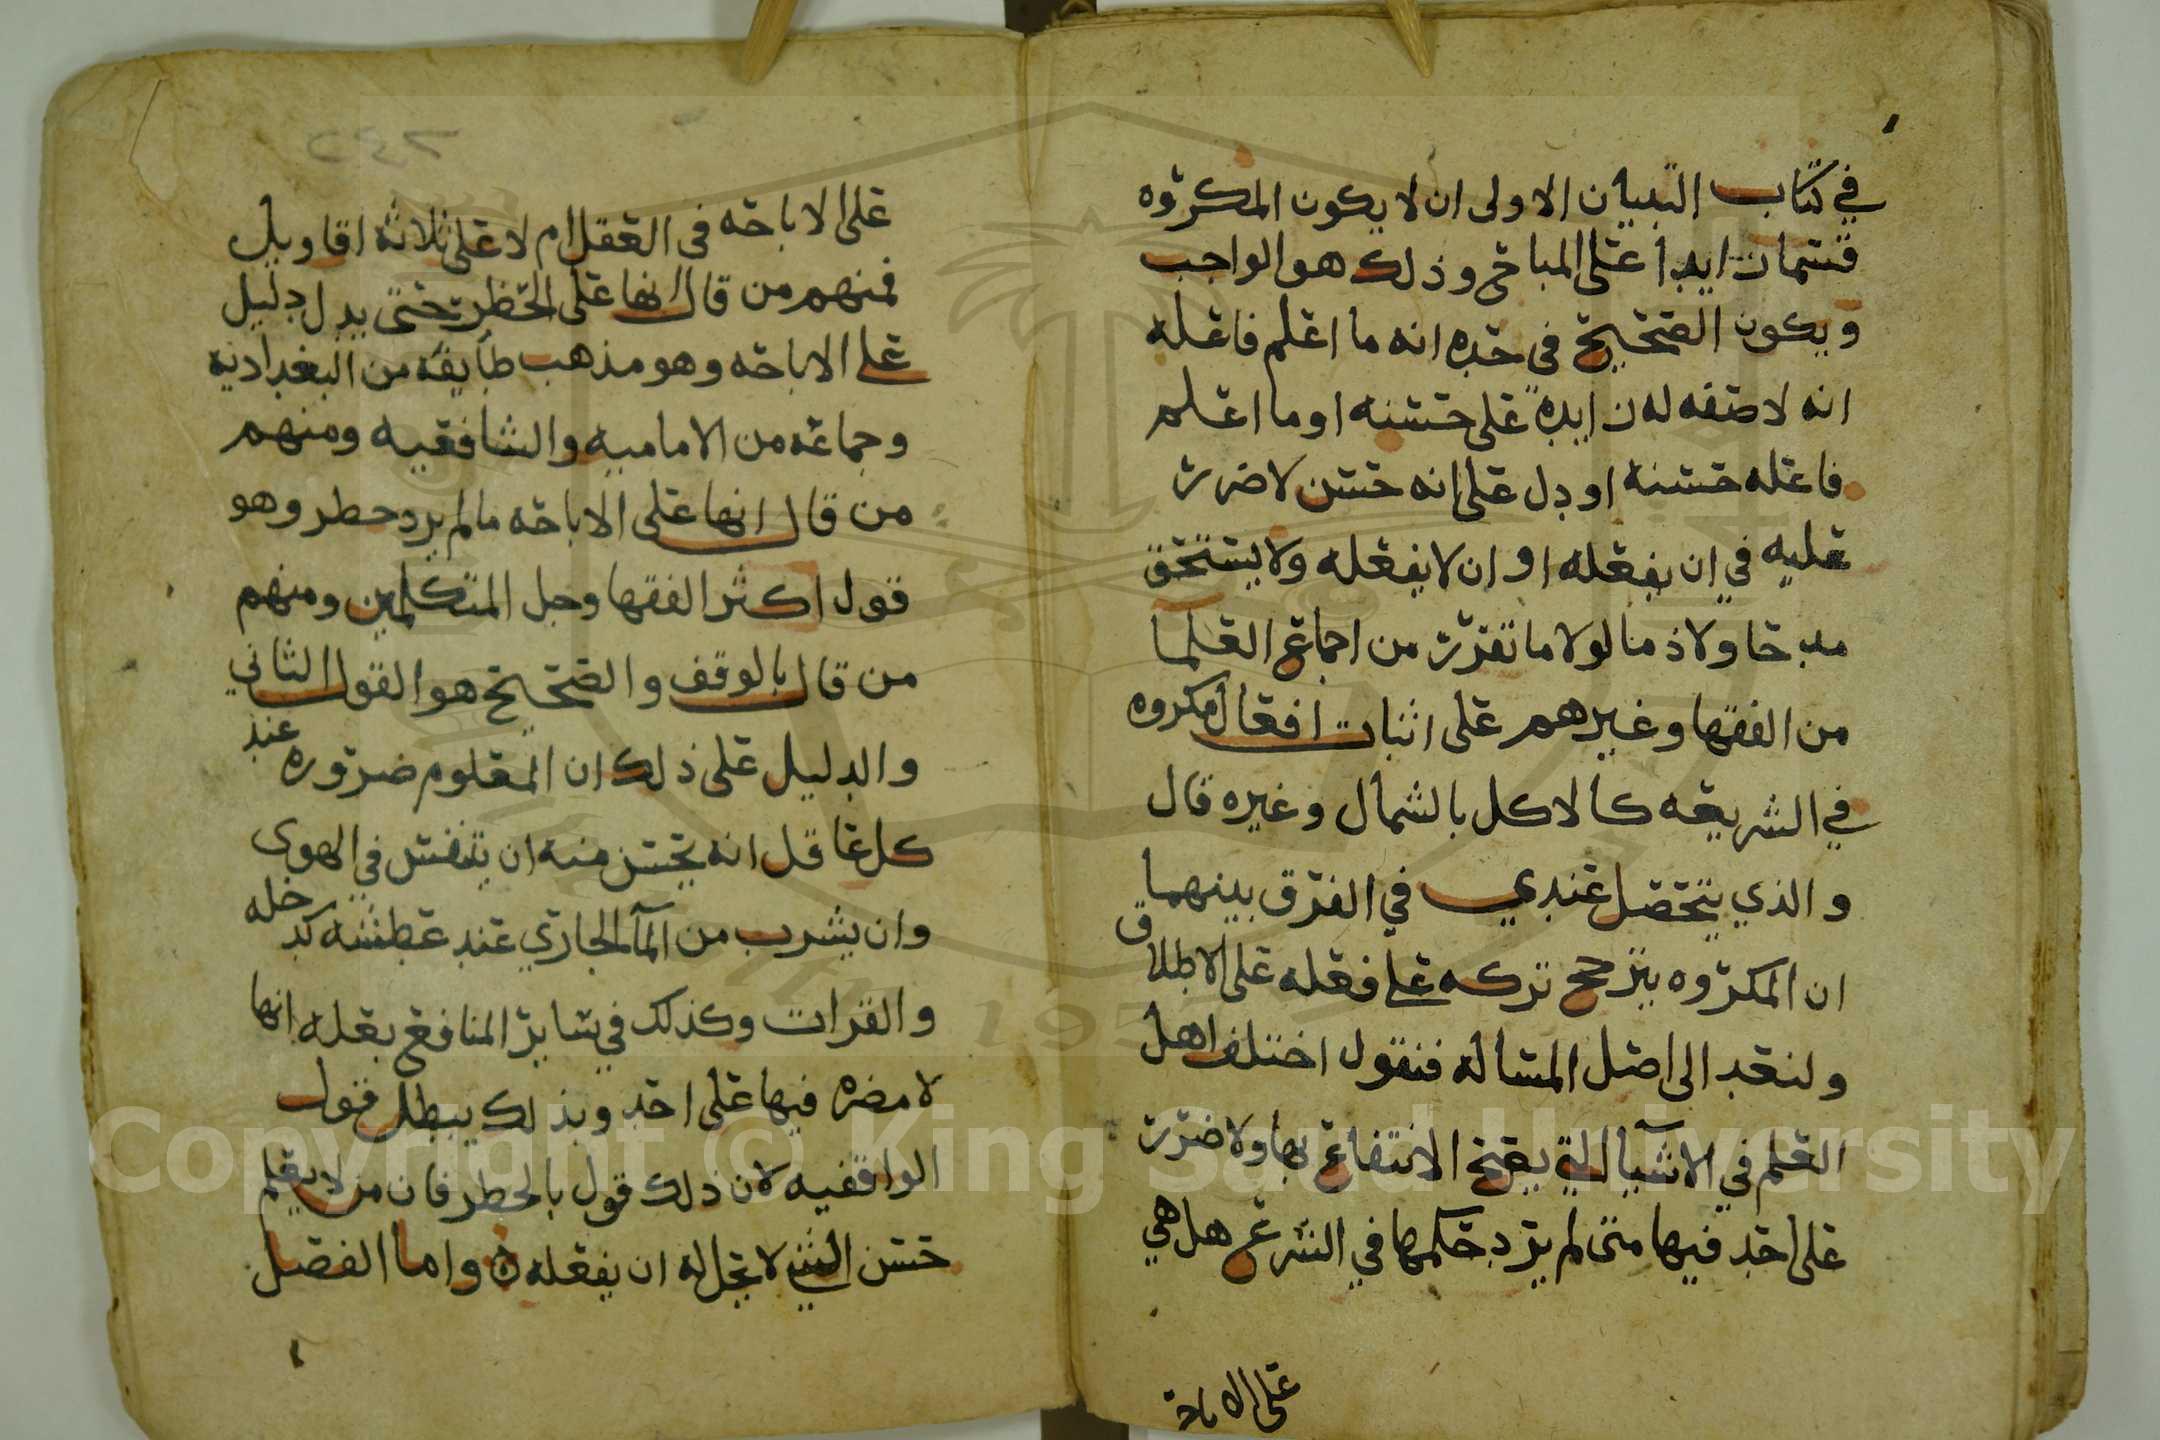 في كتاب التبيان الاولى ان لا يكون المكروه
قسمان ايدا على المباح وذلك هو الواجب
ويكون الصحيح في حده انه ما اعلم فاعله
انه لا صفه له زايده على حسنه او ما اعلم
فاعله حسنه او دل على انه حسن لا ضرر
عليه في ان يفعله او ان لا يفعله ولا يستحق
مدحا ولا ذما لولا ما تقرر من اجماع العلما
من الفقها وغيرهم على اثبات افعال مكروه
في الشريعه كالاكل بالشمال وغيره قال
والذي يتحصل عندي في الفرق بينهما
ان المكروه يترجح تركه على فعله على الاطلاق
ولنعد الى اصل المساله فنقول اختلف اهل
العلم في الاشيا التي يصح الانتفاع بها ولا ضرر
على احد فيها متى لم يرد حكمها في الشرع هل هي
على الاباحه
على الاباحه في العقل ام لا على ثلاثه اقاويل
فمنهم من قال انها على الحظر حتى يدل دليل
على الاباحه وهو مذهب طايفه من البغداديه
وجماعه من الاماميه والشافعيه ومنهم
من قال انها على الاباحه ما لم يرد حطر وهو
قول اكثر الفقها وجل المتكلمين ومنهم
من قال بالوقف والصحيح هو القول الثاني
والدليل على ذلك ان المعلوم ضروره عند
كل عاقل انه يحسن منه ان يتنفس في الهوى
وان يشرب من المآ الجاري عند عطشه كدخله
والفرات وكذلك في ساير المنافع بعله انها
لا مضره فيها على احد وبذلك يبطل قول
الواقفيه لان ذلك قول بالحطر فان من لا يعلم
حسن الشي لا يحل له ان يفعله ه واما الفصل
Copyright © King Saud University
1957